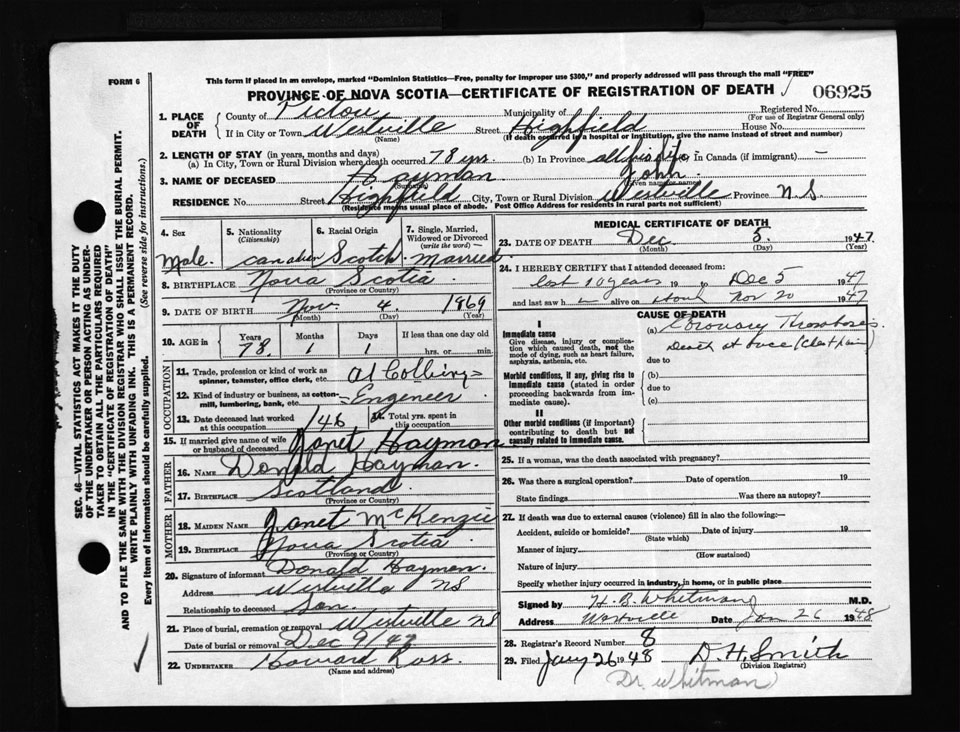 FORM 6
This form if placed in an envelope, marked "Dominion Statistics—Free, penalty for improper use $300," and properly addressed will pass through the mail "FREE"
PROVINCE OF NOVA SCOTIA—CERTIFICATE OF REGISTRATION OF DEATH
06925
1. PLACE OF DEATH
County of Pictou Municipality of Registered No.
(For use of Registrar General only)
If in City or Town Westville Street Highfield House No.
(Name) (If death occurred in a hospital or institution, give the name instead of street and number)
2. LENGTH OF STAY (in years, months and days)
(a) In City, Town or Rural Division where death occurred 78 yrs. (b) In Province all his life In Canada (if immigrant) —
3. NAME OF DECEASED Hayman John
(Surname) (Given name or names)
RESIDENCE No. Street Highfield City, Town or Rural Division Westville Province N.S
(Residence means usual place of abode. Post Office Address for residents in rural parts not sufficient)
4. Sex
Male.
5. Nationality
(Citizenship)
Canadian
6. Racial Origin
Scotch
7. Single, Married, Widowed or Divorced
(write the word)
Married
8. BIRTHPLACE Nova Scotia
(Province or Country)
9. DATE OF BIRTH Nov 4 1869
(Month) (Day) (Year)
10. AGE in Years Months Days If less than one day old
78 1 1 hrs. or min.
OCCUPATION
11. Trade, profession or kind of work as spinner, teamster, office clerk, etc. at Colliery =
12. Kind of industry or business, as cotton-mill, lumbering, bank, etc. = Engeneer
13. Date deceased last worked at this occupation /46 14. Total yrs. spent in this occupation
15. If married give name of wife or husband of deceased Janet Hayman
FATHER
16. NAME Donald Hayman.
17. BIRTHPLACE Scotland.
(Province or Country)
MOTHER
18. MAIDEN NAME Janet McKenzie
19. BIRTHPLACE Nova Scotia
(Province or Country)
20. Signature of informant Donald Hayman.
Address Westville NS
Relationship to deceased Son.
21. Place of burial, cremation or removal Westville NS
Date of burial or removal Dec 9/47
22. UNDERTAKER Howard Ross.
(Name and address)
MEDICAL CERTIFICATE OF DEATH
23. DATE OF DEATH Dec 5. 1947.
(Month) (Day) (Year)
24. I HEREBY CERTIFY that I attended deceased from:
last 10 years 19 to Dec 5 1947
and last saw h alive on Nov 20 1947
CAUSE OF DEATH
I
Immediate cause
Give disease, injury or complication which caused death, not the mode of dying, such as heart failure, asphyxia, asthenia, etc.
(a) Coronary Thrombosis.
Death at once (Chest pain)
due to
Morbid conditions, if any, giving rise to immediate cause (stated in order proceeding backwards from immediate cause).
(b)
due to
(c)
II
Other morbid conditions (if important) contributing to death but not causally related to immediate cause.
25. If a woman, was the death associated with pregnancy?
26. Was there a surgical operation? Date of operation 19
State findings Was there an autopsy?
27. If death was due to external causes (violence) fill in also the following:—
Accident, suicide or homicide? Date of injury 19
(State which)
Manner of injury
(How sustained)
Nature of injury
Specify whether injury occurred in industry, in home, or in public place
Signed by H. B. Whitman M.D.
Address Westville Date Jan 26 1948
28. Registrar's Record Number 8
29. Filed Jany 26 1948 D. H. Smith
(Division Registrar)
Dr. Whitman
SEC. 46—VITAL STATISTICS ACT MAKES IT THE DUTY
OF THE UNDERTAKER OR PERSON ACTING AS UNDER-
TAKER TO OBTAIN ALL THE PARTICULARS REQUIRED
IN THE "CERTIFICATE OF REGISTRATION OF DEATH"
AND TO FILE THE SAME WITH THE DIVISION REGISTRAR WHO SHALL ISSUE THE BURIAL PERMIT.
WRITE PLAINLY WITH UNFADING INK. THIS IS A PERMANENT RECORD.
Every item of Information should be carefully supplied. (See reverse side for instructions.)